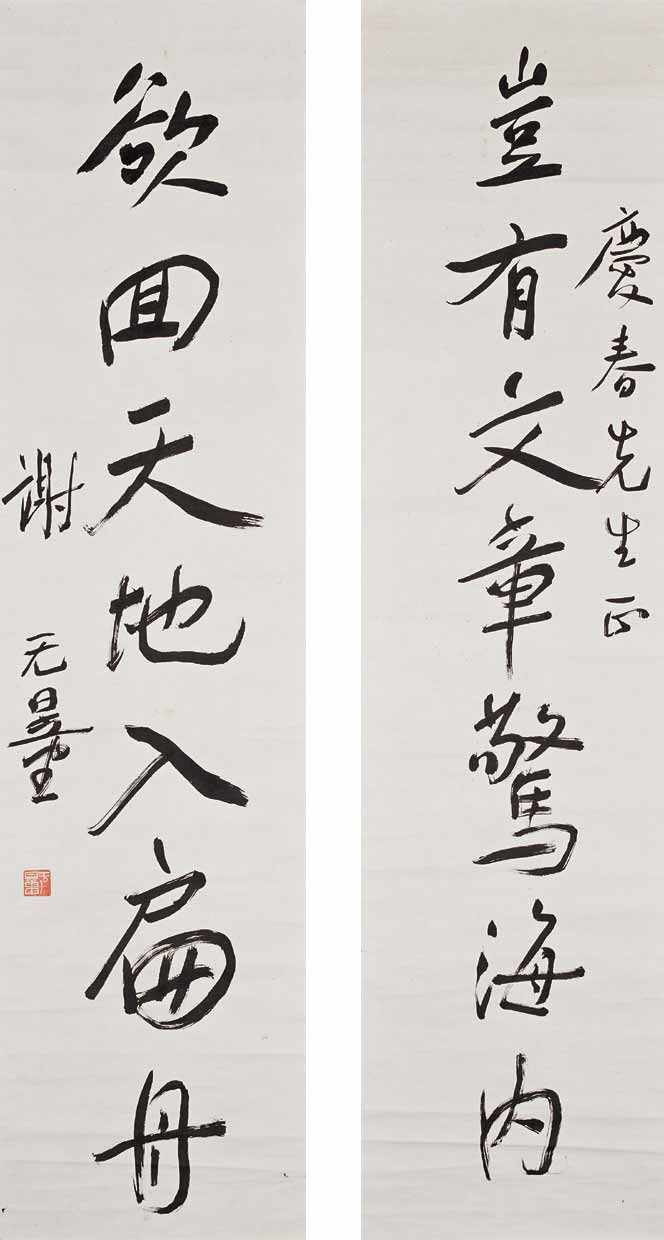 慶春先生正
豈有文章驚海内
欲回天地入扁舟
謝无量
无量